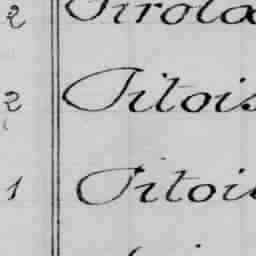 2 Pirola
2 Pitois
1 Pitois